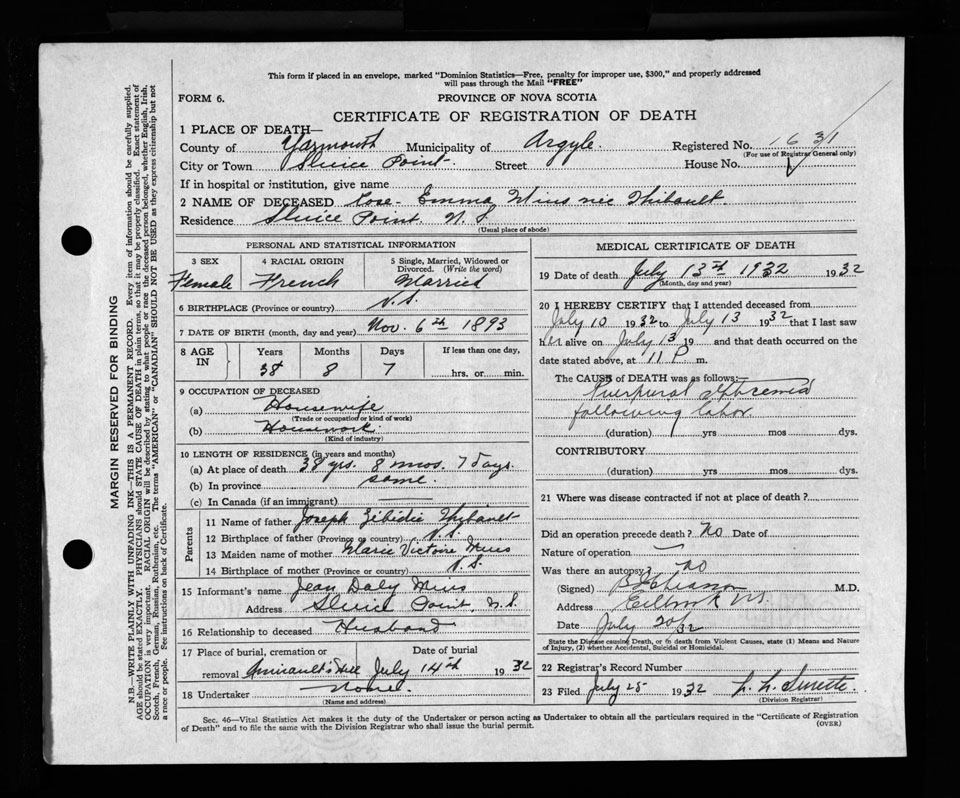 This form if placed in an envelope, marked "Dominion Statistics—Free, penalty for improper use, $300," and properly addressed
will pass through the Mail "FREE"
FORM 6.
PROVINCE OF NOVA SCOTIA
CERTIFICATE OF REGISTRATION OF DEATH
1 PLACE OF DEATH—
County of Yarmouth Municipality of Argyle. Registered No. 1631
(For use of Registrar General only)
City or Town Sluice Point. Street House No.
If in hospital or institution, give name
2 NAME OF DECEASED Rose-Emma Mius née Thibault
Residence Sluice Point N.S
(Usual place of abode)
PERSONAL AND STATISTICAL INFORMATION
3 SEX 4 RACIAL ORIGIN 5 Single, Married, Widowed or Divorced. (Write the word)
Female French Married
6 BIRTHPLACE (Province or country) N.S.
7 DATE OF BIRTH (month, day and year) Nov. 6th 1893
8 AGE IN Years Months Days If less than one day,
38 8 7 hrs. or min.
9 OCCUPATION OF DECEASED
(a) Housewife
(Trade or occupation or kind of work)
(b) Housework.
(Kind of industry)
10 LENGTH OF RESIDENCE (in years and months)
(a) At place of death 38 yrs. 8 mos. 7 days.
(b) In province same.
(c) In Canada (if an immigrant)
Parents
11 Name of father Joseph Zibidie Thibault
12 Birthplace of father (Province or country) N.S.
13 Maiden name of mother Marie Victoire Mius
14 Birthplace of mother (Province or country) N.S.
15 Informant's name Jean Daly Mius
Address Sluice Point, N.S.
16 Relationship to deceased Husband
17 Place of burial, cremation or removal Date of burial
Amirault's Hill July 14th 1932
18 Undertaker None.
(Name and address)
MEDICAL CERTIFICATE OF DEATH
19 Date of death July 13th 1932 1932
(Month, day and year)
20 I HEREBY CERTIFY that I attended deceased from
July 10 1932 to July 13 1932 that I last saw
her alive on July 13 19 and that death occurred on the
date stated above, at 11 P m.
The CAUSE of DEATH was as follows:
Puerpural
following labor
(duration) yrs mos dys.
CONTRIBUTORY
(duration) yrs mos dys.
21 Where was disease contracted if not at place of death?
Did an operation precede death? No Date of
Nature of operation
Was there an autopsy? no
(Signed) M.D.
Address Eelbrook NS.
Date July 20/32
State the Disease causing Death, or to death from Violent Causes, state (1) Means and Nature
of Injury, (2) whether Accidental, Suicidal or Homicidal.
22 Registrar's Record Number
23 Filed July 25 1932 L. L. Surette.
(Division Registrar)
Sec. 46—Vital Statistics Act makes it the duty of the Undertaker or person acting as Undertaker to obtain all the particulars required in the "Certificate of Registration
of Death" and to file the same with the Division Registrar who shall issue the burial permit.
(OVER)
MARGIN RESERVED FOR BINDING
N.B.—WRITE PLAINLY WITH UNFADING INK—THIS IS A PERMANENT RECORD. Every item of information should be carefully supplied.
AGE should be stated EXACTLY. PHYSICIANS should STATE CAUSE OF DEATH in plain terms, so that it may be properly classified. Exact statement of
OCCUPATION is very important. RACIAL ORIGIN will be described by stating to what people or race the deceased person belonged, whether English, Irish,
Scotch, French, German, Russian, Ruthenian, etc. The terms "AMERICAN" or "CANADIAN" SHOULD NOT BE USED as they express citizenship but not
a race or people. See instructions on back of Certificate.